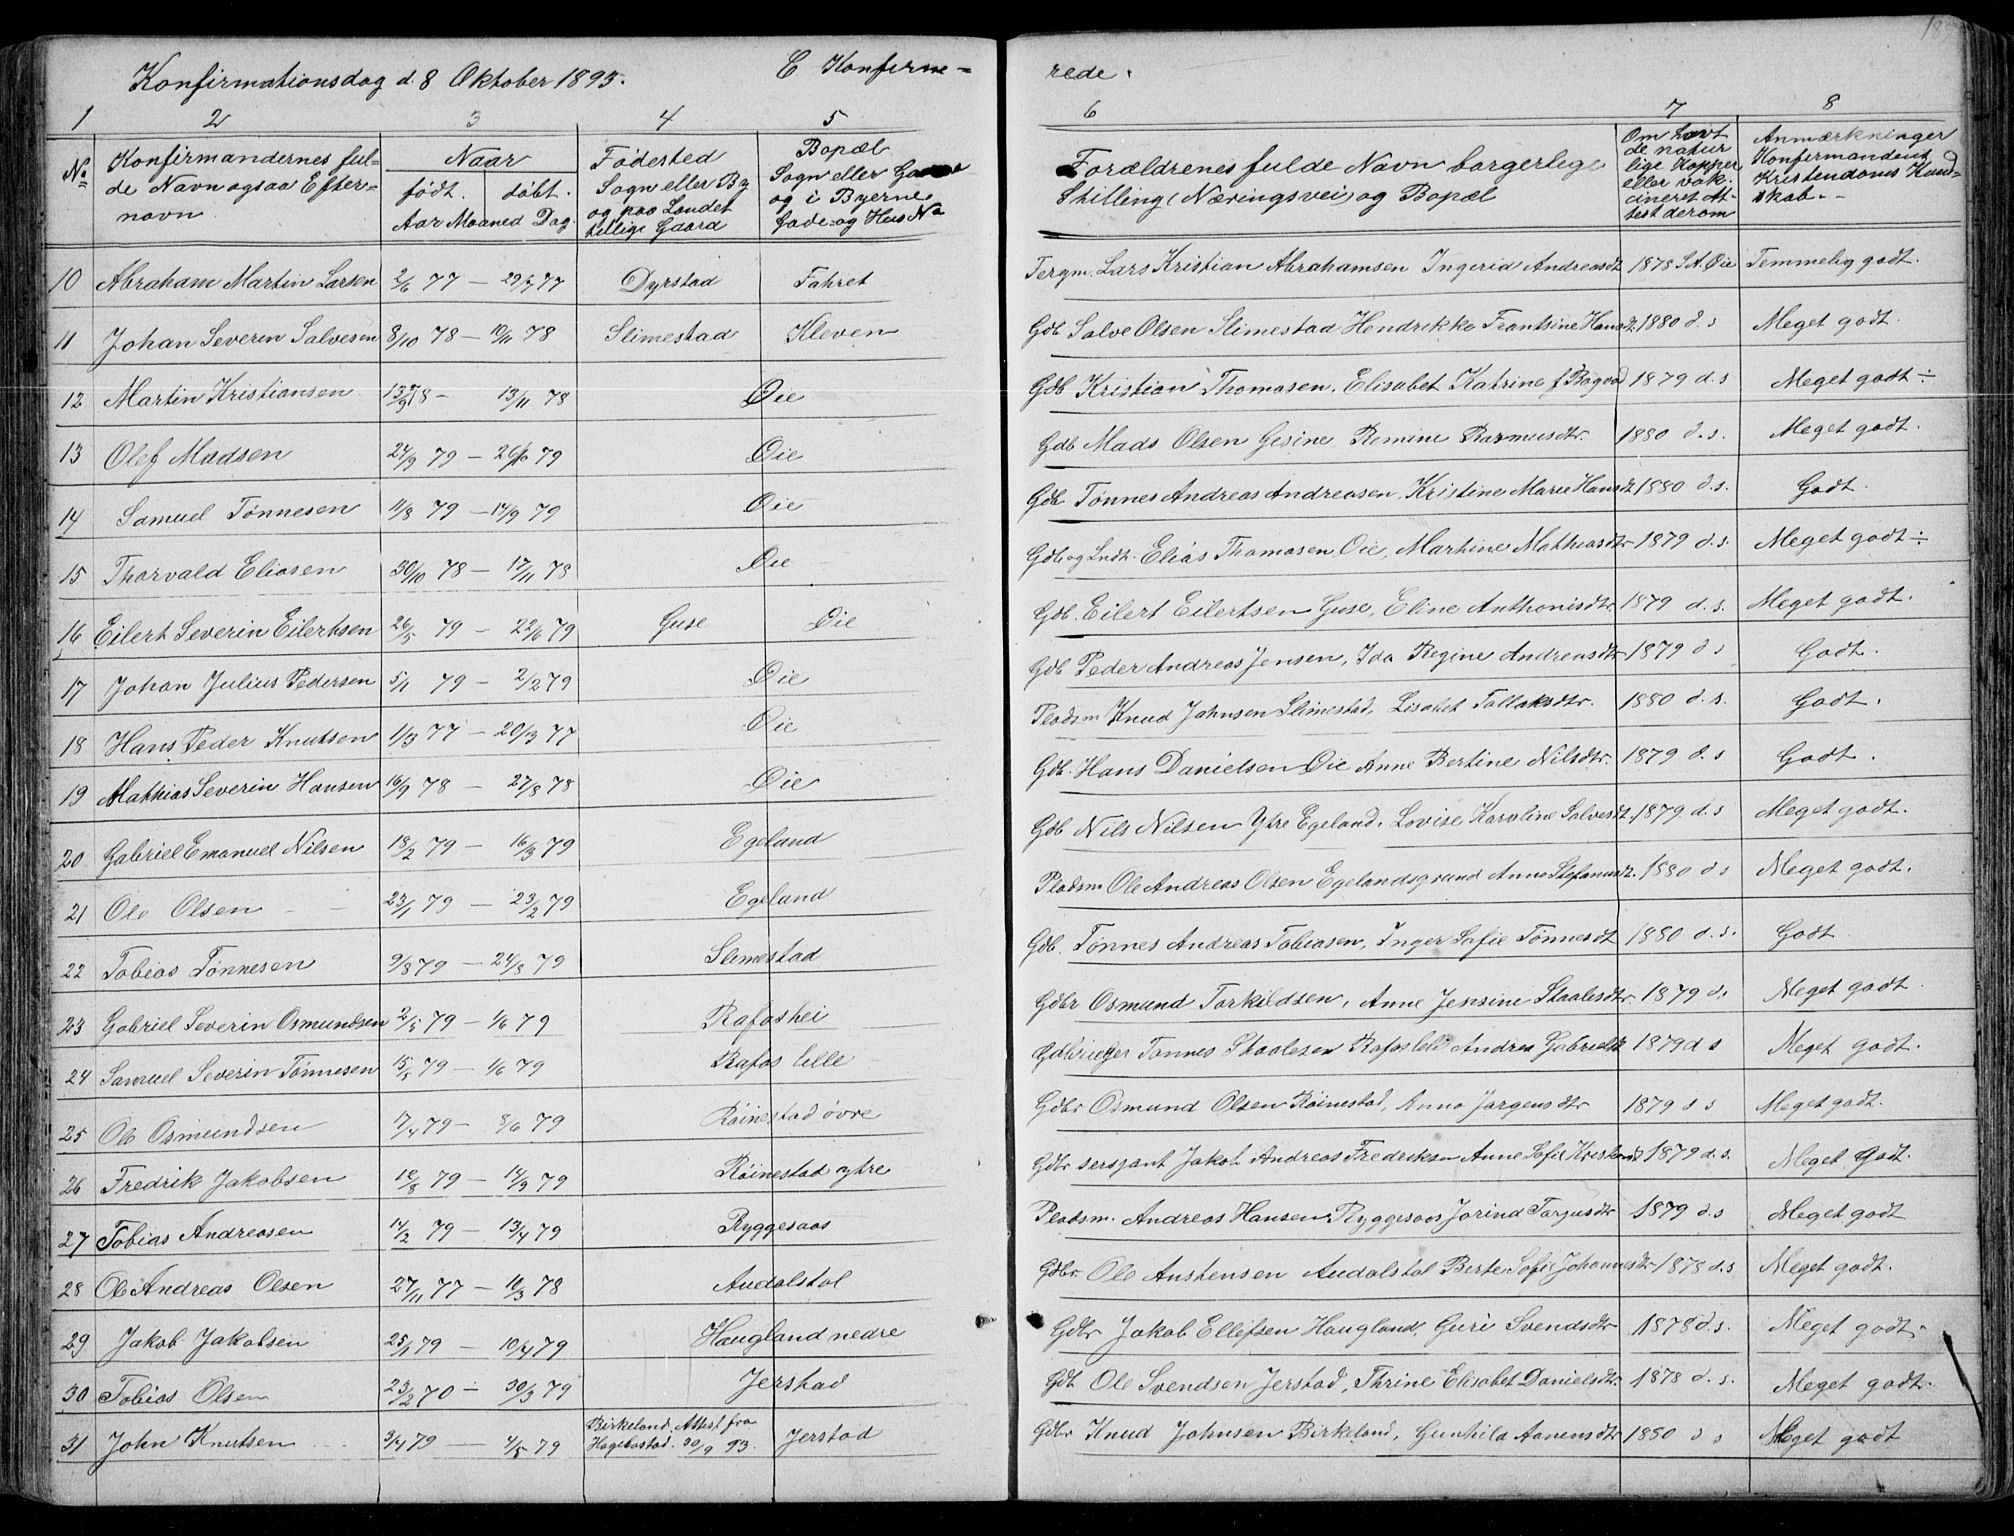 Konfirmationsdag d. 8 Oktober 1893. C Konfirme- rede.
1 2 3 4 5 6 7 8
No Konfirmandernes fulde Navn ogsaa Efternavn
Naar født. døbt. Aar Maaned Dag
Fødested Sogn eller By og paa Landet tillige Gaard
Bopæl Sogn eller Gaard og i Byerne Gade og Hus No
Forældrenes fulde Navn borgerlige Stilling (Næringsvei) og Bopæl
Om havt de naturlige Kopper eller vakcineret Attest derom
Anmærkninger Konfirmandens Kristendoms Kundskab.
10 Abraham Martin Larsen 2/6 77 — 29/7 77 Dyrstad Fahret Lars Kristian Abrahamsen Ingerid Andreasdt 1878 S.A. Øie Temmelig godt.
11 Johan Severin Salvesen 8/10 78 — 10/11 78 Slimestad Kleven Gdb Salve Olsen Slimestad Hendrikke Frantsine Hansdt. 1880 d. s Meget godt.
12 Martin Kristiansen 13/9 78 — 13/11 78 Øie Gdb Kristian Thomasen, Elisabet Katrine f 1879 d. s Meget godt÷
13 Olef Madsen 24/9 79 — 26/10 79 Øie Gdb Mads Olsen Gesine Remine Rasmusdtr. 1880 d. s. Meget godt.
14 Samuel Tønnesen 11/8 79 — 14/9 79 Øie Gdb. Tønnes Andreas Andreasen, Kristine Marie Hansdt 1880 d. s. Godt.
15 Thorvald Eliasen 30/10 78 — 17/11 78 Øie Gdb og Lndt. Elias Thomasen Øie, Martine Mathiasdtr 1879 d. s. Meget godt÷
16 Eilert Severin Eilertsen 26/5 79 — 22/6 79 Guse Øie Gdb. Eilert Eilertsen Guse, Eline Anthonisdtr. 1879 d. s. Meget godt.
17 Johan Julius Pedersen 5/1 79 — 2/2 79 Øie Gdb Peder Andreas Jensen, Ida Regine Andreasdtr 1879 d s Godt.
18 Hans Peder Knutsen 1/3 77 — 20/3 77 Øie Pladsm Knud Johnsen Slimestad, Lisabet Tallaksdtr. 1880 d. s. Godt.
19 Mathias Severin Hansen 16/9 78 — 27/8 78 Øie Gdb. Hans Danielsen Øie Anne Bertine Nilsdtr. 1879 d. s Godt.
20 Gabriel Emanuel Nilsen 18/2 79 — 16/3 79 Egeland Gdb Nils Nilsen Ytre Egeland, Lovise Karoline Salvesdt. 1879 d. s Meget godt.
21 Ole Olsen 23/1 79 — 23/2 79 Egeland Pladsm Ole Andreas Olsen Egelandsgrund Anna Stefanusdt. 1880 d s Meget godt.
22 Tobias Tønnesen 9/8 79 — 24/8 79 Slimestad Gdb. Tønnes Andreas Tobiasen, Inger Sofie Tønnesdt 1880 d. s. Godt
23 Gabriel Severin Osmundsen 2/5 79 — 1/6 79 Rafoshei Gdbr Osmund Torkildsen, Anne Jensine Staalesdtr. 1879 d. Meget godt.
24 Samuel Severin Tønnesen 15/5 79 — 1/6 79 Rafos lille Tønnes Staalesen Rafos lille Andrea Gabrielsdt 1879 d s Meget godt.
25 Ole Osmundsen 17/4 79 — 8/6 79 Röinestad övre Gdbr Osmund Olsen Röinestad, Anna Jørgensdtr 1879 d s Meget godt.
26 Fredrik Jakobsen 12/3 79 — 14/3 79 Röinestad ytre Gdbr sersjant Jakob Andreas Frederiksen Anne Sofie 1879 d. s. Meget godt.
27 Tobias Andreasen 14/2 79 — 13/4 79 Ryggesaas Pladsm. Andreas Hansen Ryggesaas Jorind Targusdtr 1879 d. s Meget godt
28 Ole Andreas Olsen 27/11 77 — 10/3 78 Audalstøl Gdbr. Ole Anstensen Audalstøl Berte Sofie Johannesdtr 1878 d. s Meget godt.
29 Jakob Jakobsen 25/1 79 — 10/4 79 Haugland nedre Gdbr Jakob Ellefsen Haugland, Guri Svendsdtr 1878 d. s. Meget godt.
30 Tobias Olsen 23/2 70 — 30/3 79 Jerstad Gdb Ole Svendsen Jerstad, Thrine Elisabet Danielsdtr. 1878 d. s. Meget godt.
31 John Knutsen 3/4 79 — 4/5 79 Birkeland Attest fra Hægebostad. 30/9 93. Jerstad Gdbr Knud Johnsen Birkeland, Gunhild Aanensdtr 1880 d s Meget godt